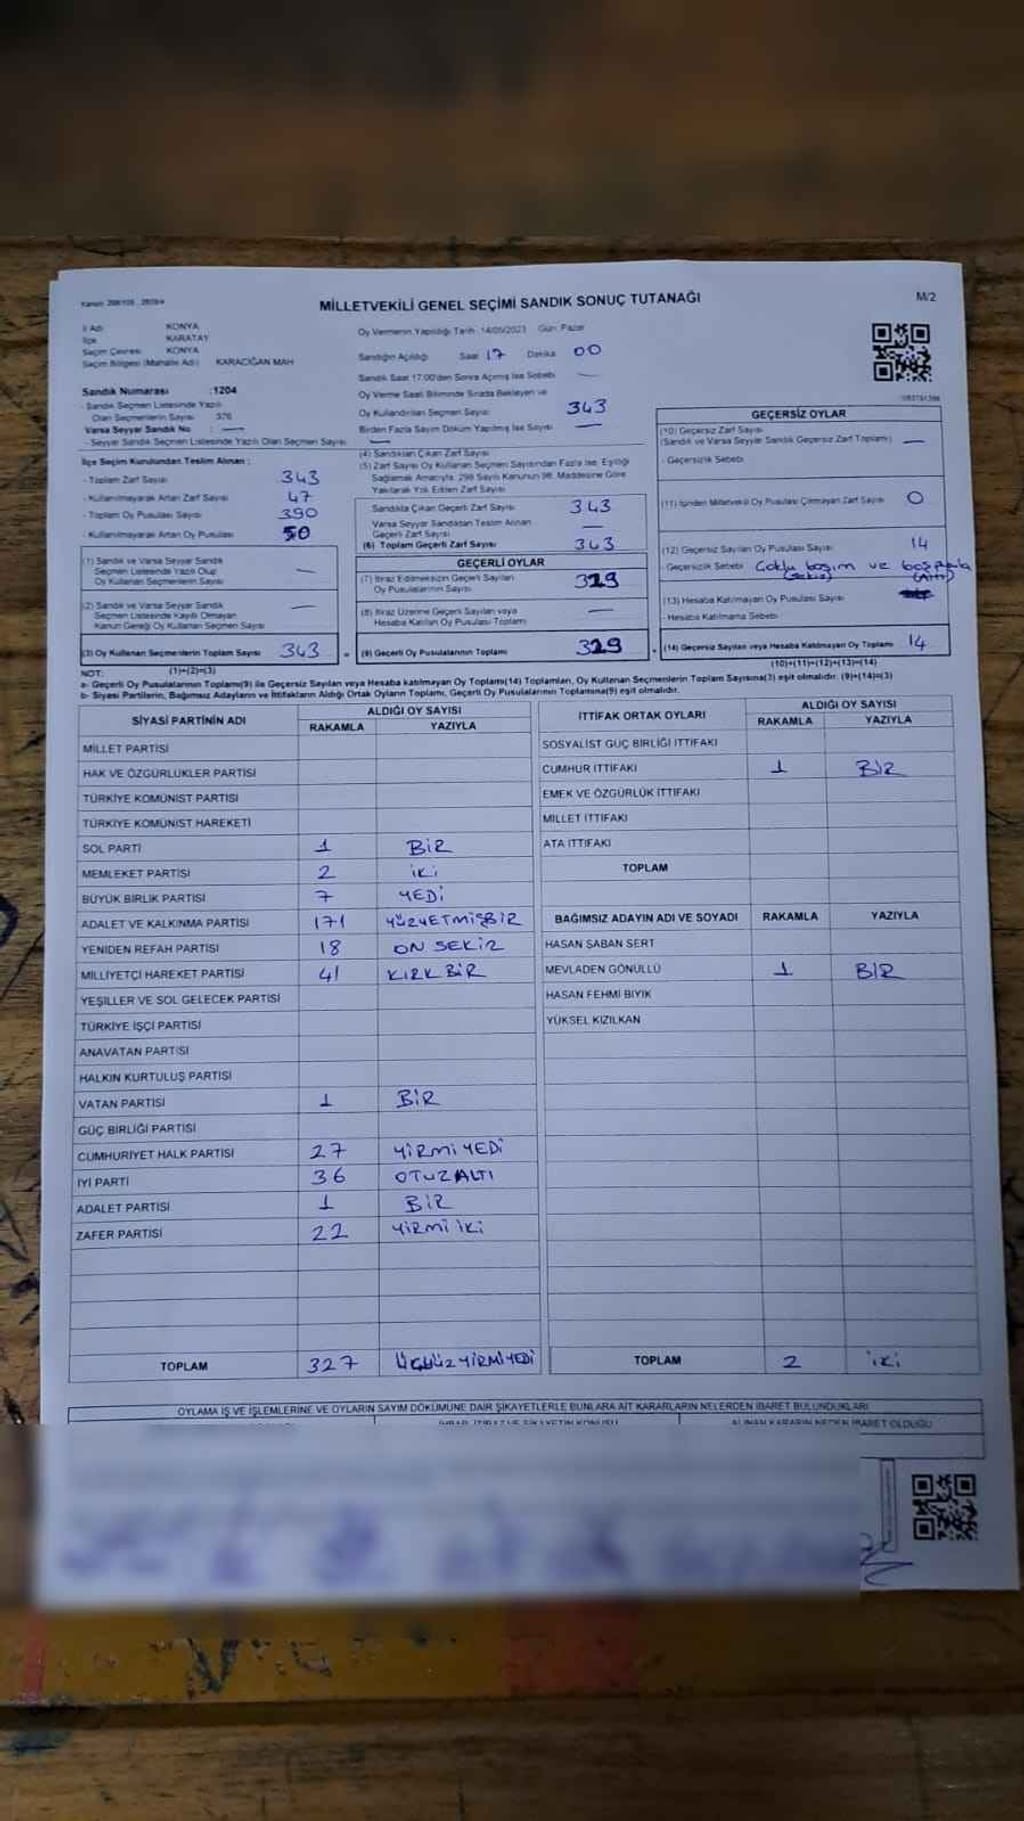 MİLLETVEKİLİ GENEL SEÇİMİ SANDIK SONUÇ TUTANAĞI
M/2
İl Adı KONYA
İlçe KARATAY
Seçim Çevresi KONYA
Seçim Bölgesi (Mahalle Adı) KARACIĞAN MAH
Sandık Numarası :1204
- Sandık Seçmen Listesinde Yazılı
Olan Seçmenlerin Sayısı 376
Varsa Seyyar Sandık No —
- Seyyar Sandık Seçmen Listesinde Yazılı Olan Seçmen Sayısı —
Oy Vermenin Yapıldığı Tarih :14/05/2023 Gün: Pazar
Sandığın Açıldığı Saat 17 Dakika 00
Sandık Saat 17:00'den Sonra Açılmış İse Sebebi —
Oy Verme Saati Bitiminde Sırada Bekleyen ve
Oy Kullandırılan Seçmen Sayısı 343
Birden Fazla Sayım Döküm Yapılmış İse Sayısı —
İlçe Seçim Kurulundan Teslim Alınan :
- Toplam Zarf Sayısı 343
- Kullanılmayarak Artan Zarf Sayısı 47
- Toplam Oy Pusulası Sayısı 390
- Kullanılmayarak Artan Oy Pusulası 50
(1) Sandık ve Varsa Seyyar Sandık
Seçmen Listesinde Yazılı Olup
Oy Kullanan Seçmenlerin Sayısı —
(2) Sandık ve Varsa Seyyar Sandık
Seçmen Listesinde Kaydı Olmayan
Kanun Gereği Oy Kullanan Seçmen Sayısı —
(3) Oy Kullanan Seçmenlerin Toplam Sayısı 343
(1)+(2)=(3)
(4) Sandıktan Çıkan Zarf Sayısı
(5) Zarf Sayısı Oy Kullanan Seçmen Sayısından Fazla İse, Eşitliği
Sağlamak Amacıyla, 298 Sayılı Kanunun 98. Maddesine Göre
Yakılarak Yok Edilen Zarf Sayısı
Sandıkta Çıkan Geçerli Zarf Sayısı 343
Varsa Seyyar Sandıktan Teslim Alınan
Geçerli Zarf Sayısı —
(6) Toplam Geçerli Zarf Sayısı 343
GEÇERLİ OYLAR
(7) İtiraz Edilmeksizin Geçerli Sayılan
Oy Pusulalarının Sayısı 329
(8) İtiraz Üzerine Geçerli Sayılan veya
Hesaba Katılan Oy Pusulası Toplamı —
= (9) Geçerli Oy Pusulalarının Toplamı 329
GEÇERSİZ OYLAR
(10) Geçersiz Zarf Sayısı
(Sandık ve Varsa Seyyar Sandık Geçersiz Zarf Toplamı) —
- Geçersizlik Sebebi
(11) İçinden Milletvekili Oy Pusulası Çıkmayan Zarf Sayısı 0
(12) Geçersiz Sayılan Oy Pusulası Sayısı 14
- Geçersizlik Sebebi Çoklu basım ve boş pusula
(Sekiz) (Altı)
(13) Hesaba Katılmayan Oy Pusulası Sayısı
- Hesaba Katılmama Sebebi
+ (14) Geçersiz Sayılan veya Hesaba Katılmayan Oy Toplamı 14
(10)+(11)+(12)+(13)=(14)
NOT:
a- Geçerli Oy Pusulalarının Toplamı(9) ile Geçersiz Sayılan veya Hesaba katılmayan Oy Toplamı(14) Toplamları, Oy Kullanan Seçmenlerin Toplam Sayısına(3) eşit olmalıdır. (9)+(14)=(3)
b- Siyasi Partilerin, Bağımsız Adayların ve İttifakların Aldığı Ortak Oyların Toplamı, Geçerli Oy Pusulalarının Toplamına(9) eşit olmalıdır.
SİYASİ PARTİNİN ADI ALDIĞI OY SAYISI
RAKAMLA YAZIYLA
MİLLET PARTİSİ
HAK VE ÖZGÜRLÜKLER PARTİSİ
TÜRKİYE KOMÜNİST PARTİSİ
TÜRKİYE KOMÜNİST HAREKETİ
SOL PARTİ 1 BİR
MEMLEKET PARTİSİ 2 İKİ
BÜYÜK BİRLİK PARTİSİ 7 YEDİ
ADALET VE KALKINMA PARTİSİ 171 YÜZYETMİŞBİR
YENİDEN REFAH PARTİSİ 18 ON SEKİZ
MİLLİYETÇİ HAREKET PARTİSİ 41 KIRK BİR
YEŞİLLER VE SOL GELECEK PARTİSİ
TÜRKİYE İŞÇİ PARTİSİ
ANAVATAN PARTİSİ
HALKIN KURTULUŞ PARTİSİ
VATAN PARTİSİ 1 BİR
GÜÇ BİRLİĞİ PARTİSİ
CUMHURİYET HALK PARTİSİ 27 YİRMİ YEDİ
İYİ PARTİ 36 OTUZ ALTI
ADALET PARTİSİ 1 BİR
ZAFER PARTİSİ 22 YİRMİ İKİ
TOPLAM 327 ÜÇYÜZ YİRMİ YEDİ
İTTİFAK ORTAK OYLARI ALDIĞI OY SAYISI
RAKAMLA YAZIYLA
SOSYALİST GÜÇ BİRLİĞİ İTTİFAKI
CUMHUR İTTİFAKI 1 BİR
EMEK VE ÖZGÜRLÜK İTTİFAKI
MİLLET İTTİFAKI
ATA İTTİFAKI
TOPLAM
BAĞIMSIZ ADAYIN ADI VE SOYADI RAKAMLA YAZIYLA
HASAN ŞABAN SERT
MEVLADEN GÖNÜLLÜ 1 BİR
HASAN FEHMİ BIYIK
YÜKSEL KIZILKAN
TOPLAM 2 İKİ
OYLAMA İŞ VE İŞLEMLERİNE VE OYLARIN SAYIM DÖKÜMÜNE DAİR ŞİKAYETLERLE BUNLARA AİT KARARLARIN NELERDEN İBARET BULUNDUKLARI
İHBAR, İTİRAZ VE ŞİKAYETİN KONUSU ALINAN KARARIN NEDEN İBARET OLDUĞU